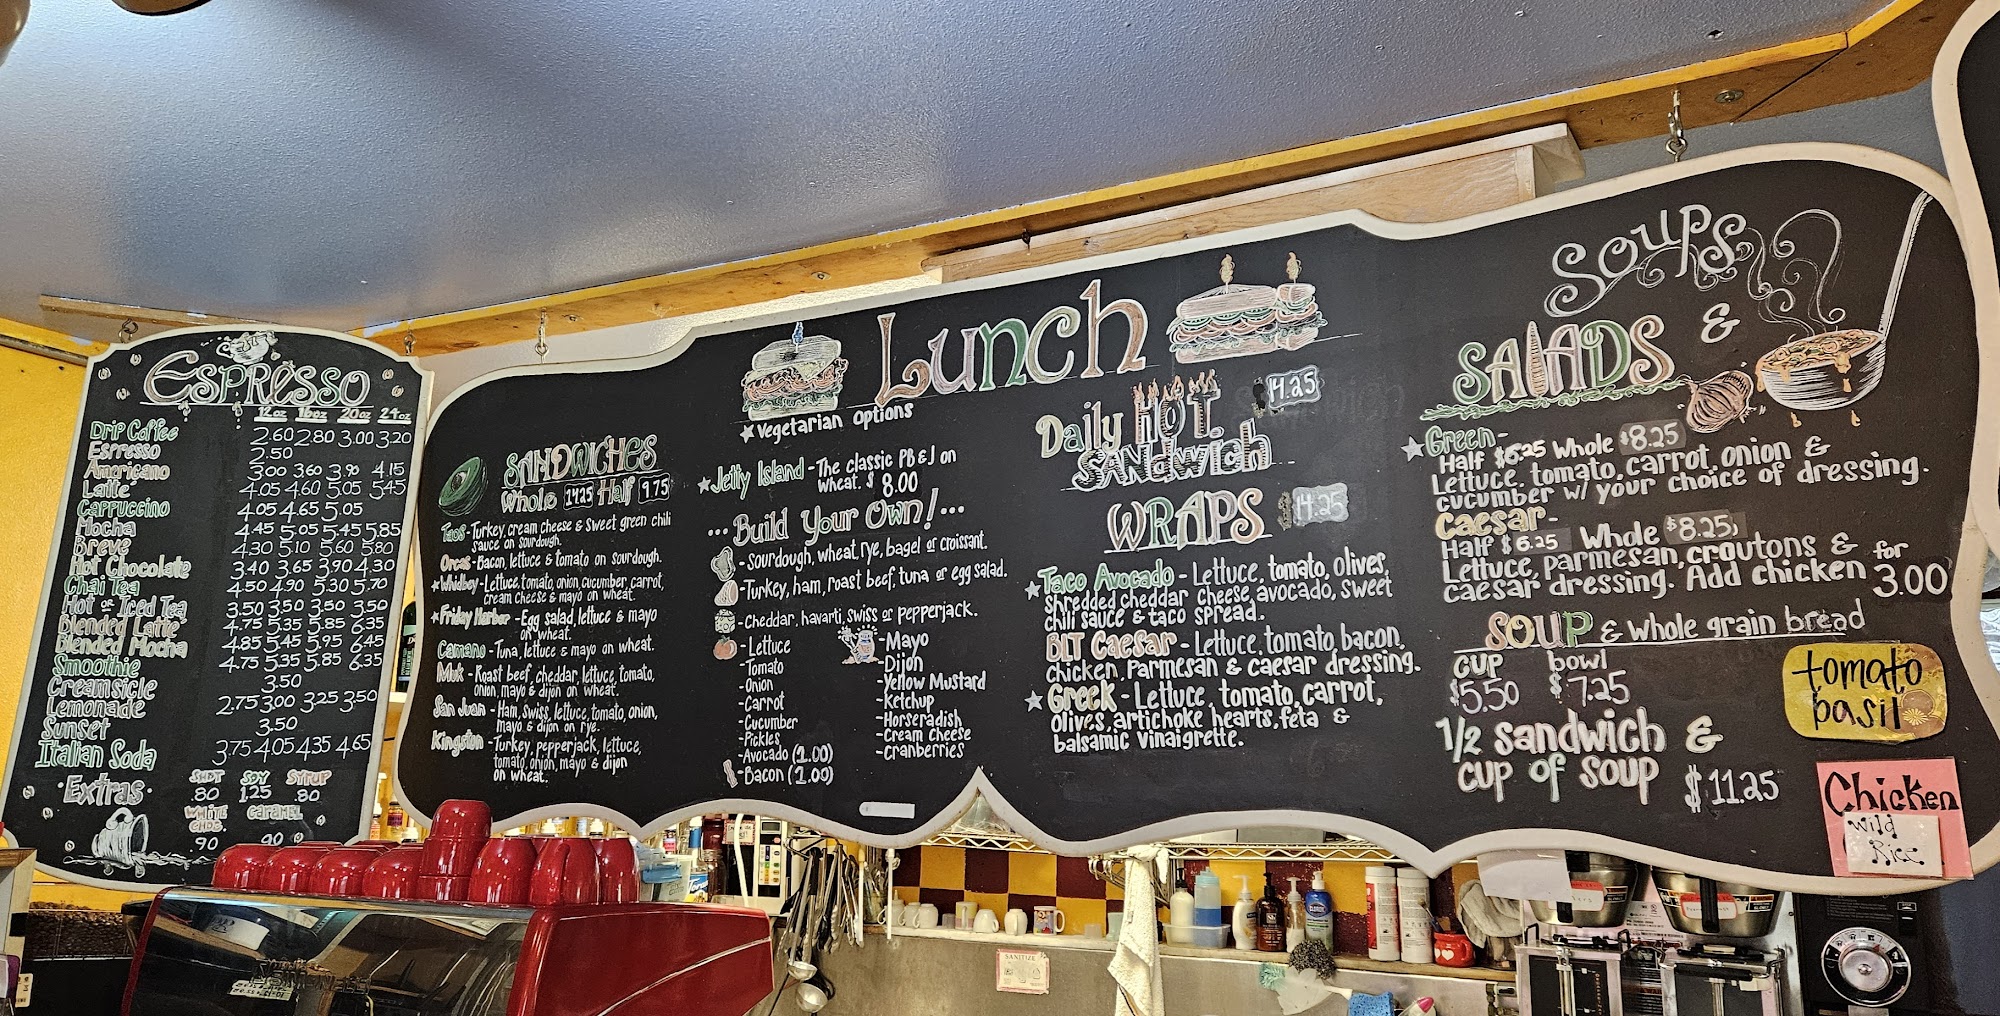 Espresso
12oz 16oz 20oz 24oz
Drip Coffee 2.60 2.80 3.00 3.20
Espresso 2.50
Americano 3.00 3.60 3.90 4.15
Latte 4.05 4.60 5.05 5.45
Cappuccino 4.05 4.65 5.05
Mocha 4.45 5.05 5.45 5.85
Breve 4.30 5.10 5.60 5.80
Hot Chocolate 3.40 3.65 3.90 4.30
Chai Tea 4.50 4.90 5.30 5.70
Hot or Iced Tea 3.50 3.50 3.50 3.50
Blended Latte 4.75 5.35 5.85 6.35
Blended Mocha 4.85 5.45 5.95 6.45
Smoothie 4.75 5.35 5.85 6.35
Creamsicle 3.50
Lemonade 2.75 3.00 3.25 3.50
Sunset 3.50
Italian Soda 3.75 4.05 4.35 4.65
·Extras·
Shot Soy Syrup
.80 1.25 .80
White Choc. Caramel
.90 .90
Lunch
Vegetarian Options
Sandwiches
Whole 14.25 Half 9.75
Taos - Turkey, cream cheese & sweet green chili
sauce on sourdough.
Orcas - Bacon, lettuce & tomato on sourdough.
Whidbey - Lettuce, tomato, onion, cucumber, carrot,
cream cheese & mayo on wheat.
Friday Harbor - Egg salad, lettuce & mayo
on wheat.
Camano - Tuna, lettuce & mayo on wheat.
Muk - Roast beef, cheddar, lettuce, tomato,
onion, mayo & dijon on wheat.
San Juan - Ham, swiss, lettuce, tomato, onion,
mayo & dijon on rye.
Kingston - Turkey, pepperjack, lettuce,
tomato, onion, mayo & dijon
on wheat.
Jetty Island - The classic PB&J on
wheat. $8.00
...Build Your Own!...
- Sourdough, wheat, rye, bagel or croissant.
- Turkey, ham, roast beef, tuna or egg salad.
- Cheddar, havarti, swiss or pepperjack.
- Lettuce
- Tomato
- Onion
- Carrot
- Cucumber
- Pickles
- Avocado (2.00)
- Bacon (2.00)
- Mayo
- Dijon
- Yellow Mustard
- Ketchup
- Horseradish
- Cream Cheese
- Cranberries
Daily HOT 14.25
Sandwich
Wraps $14.25
Taco Avocado - Lettuce, tomato, olives,
shredded cheddar cheese, avocado, sweet
chili sauce & taco spread.
BLT Caesar - Lettuce, tomato, bacon,
chicken, parmesan & caesar dressing.
Greek - Lettuce, tomato, carrot,
olives, artichoke hearts, feta &
balsamic vinaigrette.
Soups
&
Salads
Green -
Half $6.25 Whole $8.25
Lettuce, tomato, carrot, onion &
cucumber w/ your choice of dressing.
Caesar -
Half $6.25 Whole $8.25,
Lettuce, parmesan, croutons &
caesar dressing. Add chicken for 3.00
Soup & whole grain bread
cup bowl
$5.50 $7.25
1/2 sandwich &
cup of soup $11.25
tomato
basil
Chicken
Wild
Rice
SANITIZE